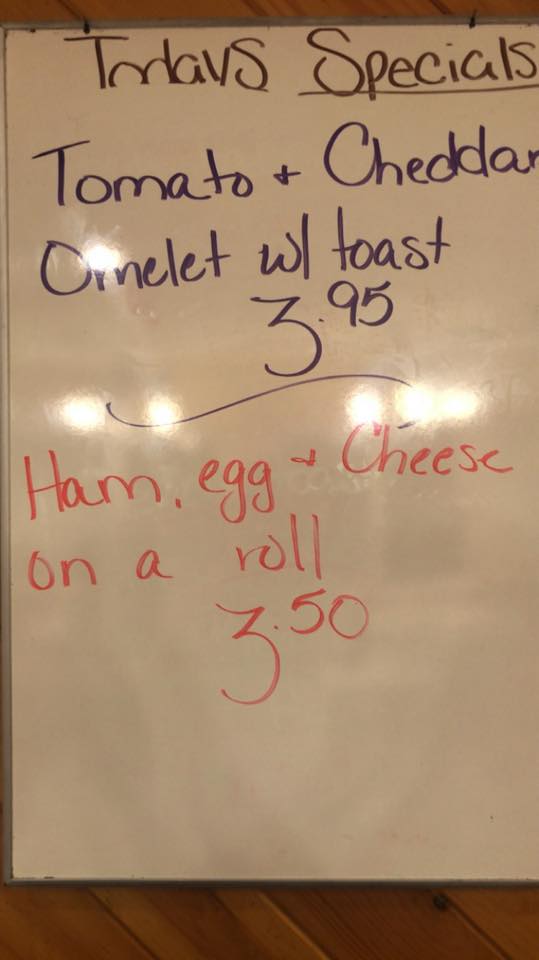 Todays Specials
Tomato + Cheddar
Omelet w/ toast
3.95
Ham, egg + Cheese
on a roll
3.50